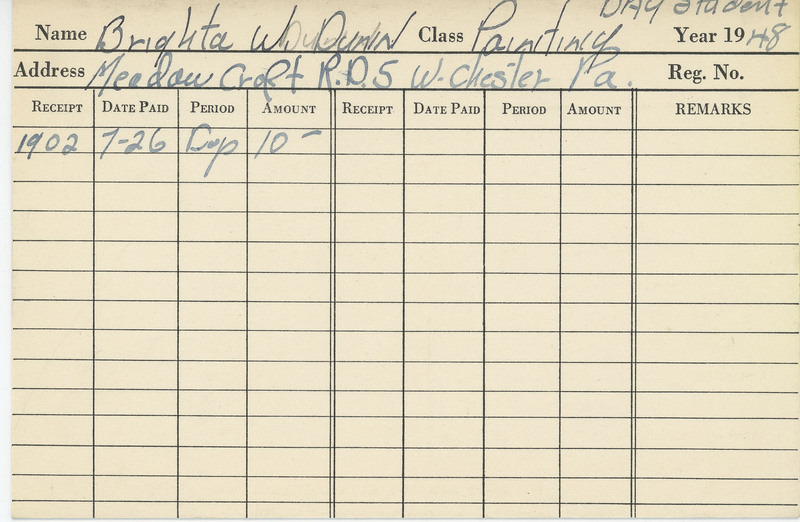 DAY Student
Name Brighta W. Dunin Class Painting Year 1948
Address Meadow Croft R.D.5 W. Chester Pa. Reg. No.
RECEIPT DATE PAID PERIOD AMOUNT RECEIPT DATE PAID PERIOD AMOUNT REMARKS
1902 7-26 Dep 10 –